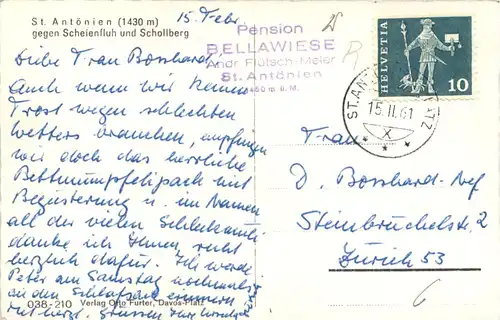 St. Antönien (1430 m)
gegen Scheienfluh und Schollberg
15. Febr.
Liebe Frau Bosshard,
Auch wenn wir keinen
Trost wegen schlechten
Wetters brauchen, empfingen
wir doch das herrliche
mit
Begeisterung u. im Namen
all der vielen
danke ich Ihnen recht
herzlich dafür. Ich werde
Peter am Samstag nochmals
an den Schlafsack erinnern
mit herzl. Grüssen Ihre
038-210 Verlag Otto Furter, Davos-Platz
Pension
BELLAWIESE
Andr. Flütsch-Meier
St. Antönien
1460 m ü. M.
HELVETIA
10
ST. ANTÖNIEN PLATZ
15.II.61
X
Frau
D. Bosshard-Nef
Steinbrüchelstr. 2
Zürich 53
6